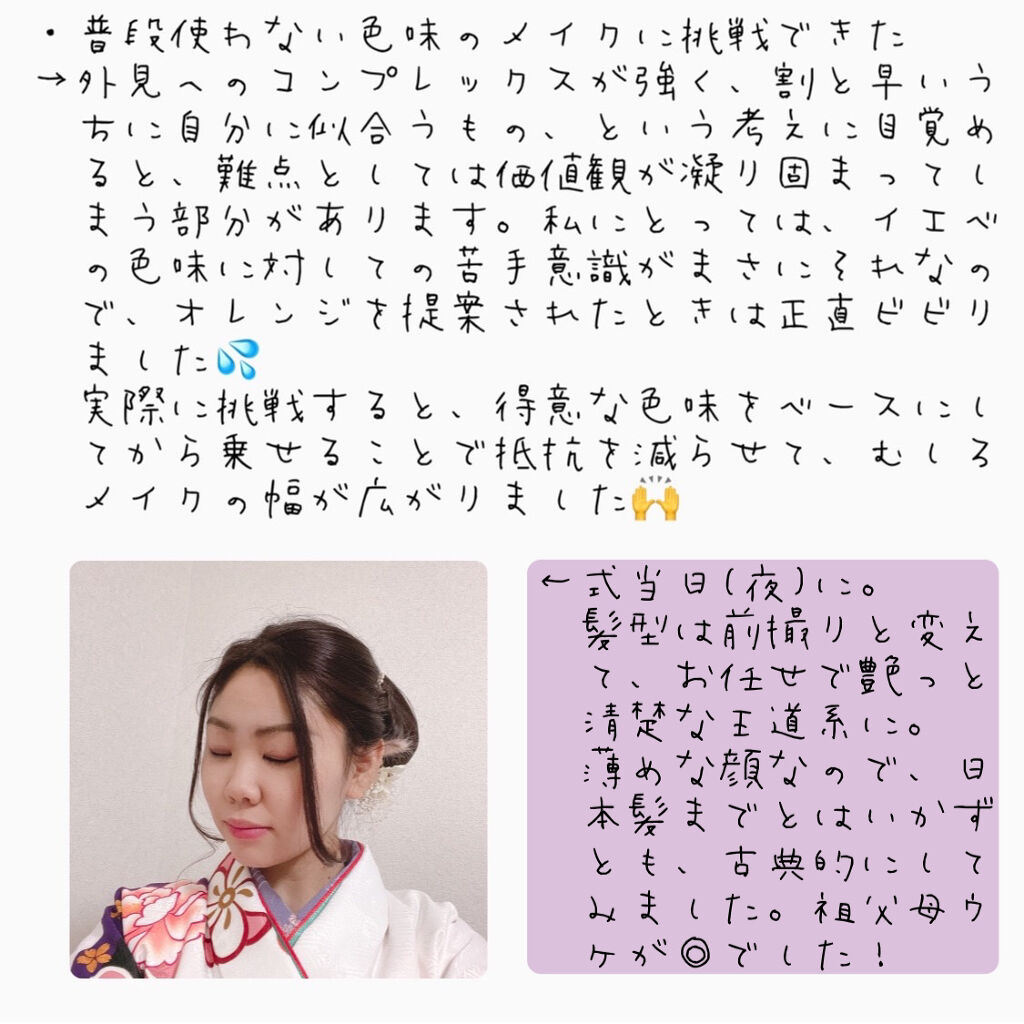 ・普段使わない色味のメイクに挑戦できた
→外見へのコンプレックスが強く、割と早いう
ちに自分に似合うもの、という考えに目覚め
ると、難点としては価値観が凝り固まってし
まう部分があります。私にとっては、イエベ
の色味に対しての苦手意識がまさにそれなの
で、オレンジを提案されたときは正直ビビリ
ました💦
実際に挑戦すると、得意な色味をベースにし
てから乗せることで抵抗を減らせて、むしろ
メイクの幅が広がりました🙌
← 式当日(夜)に。
髪型は前撮りと変え
て、お任せで艶っと
清楚な王道系に。
薄めな顔なので、日
本髪まではいかず
とも、古典的にして
みました。祖父母ウ
ケが◎でした!